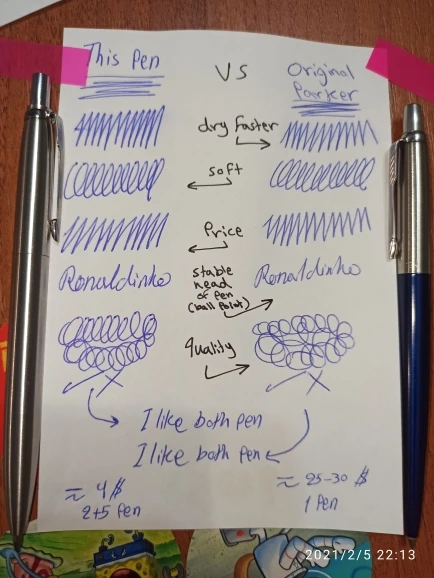 This Pen
VS
Original
Parker
dry faster
soft
Price
Ronaldinho
stable
head
of pen
(ball point)
Ronaldinho
quality
I like both pen
I like both pen
≈ 4 $
2+5 Pen
≈ 25-30 $
1 Pen
2021/2/5 22:13